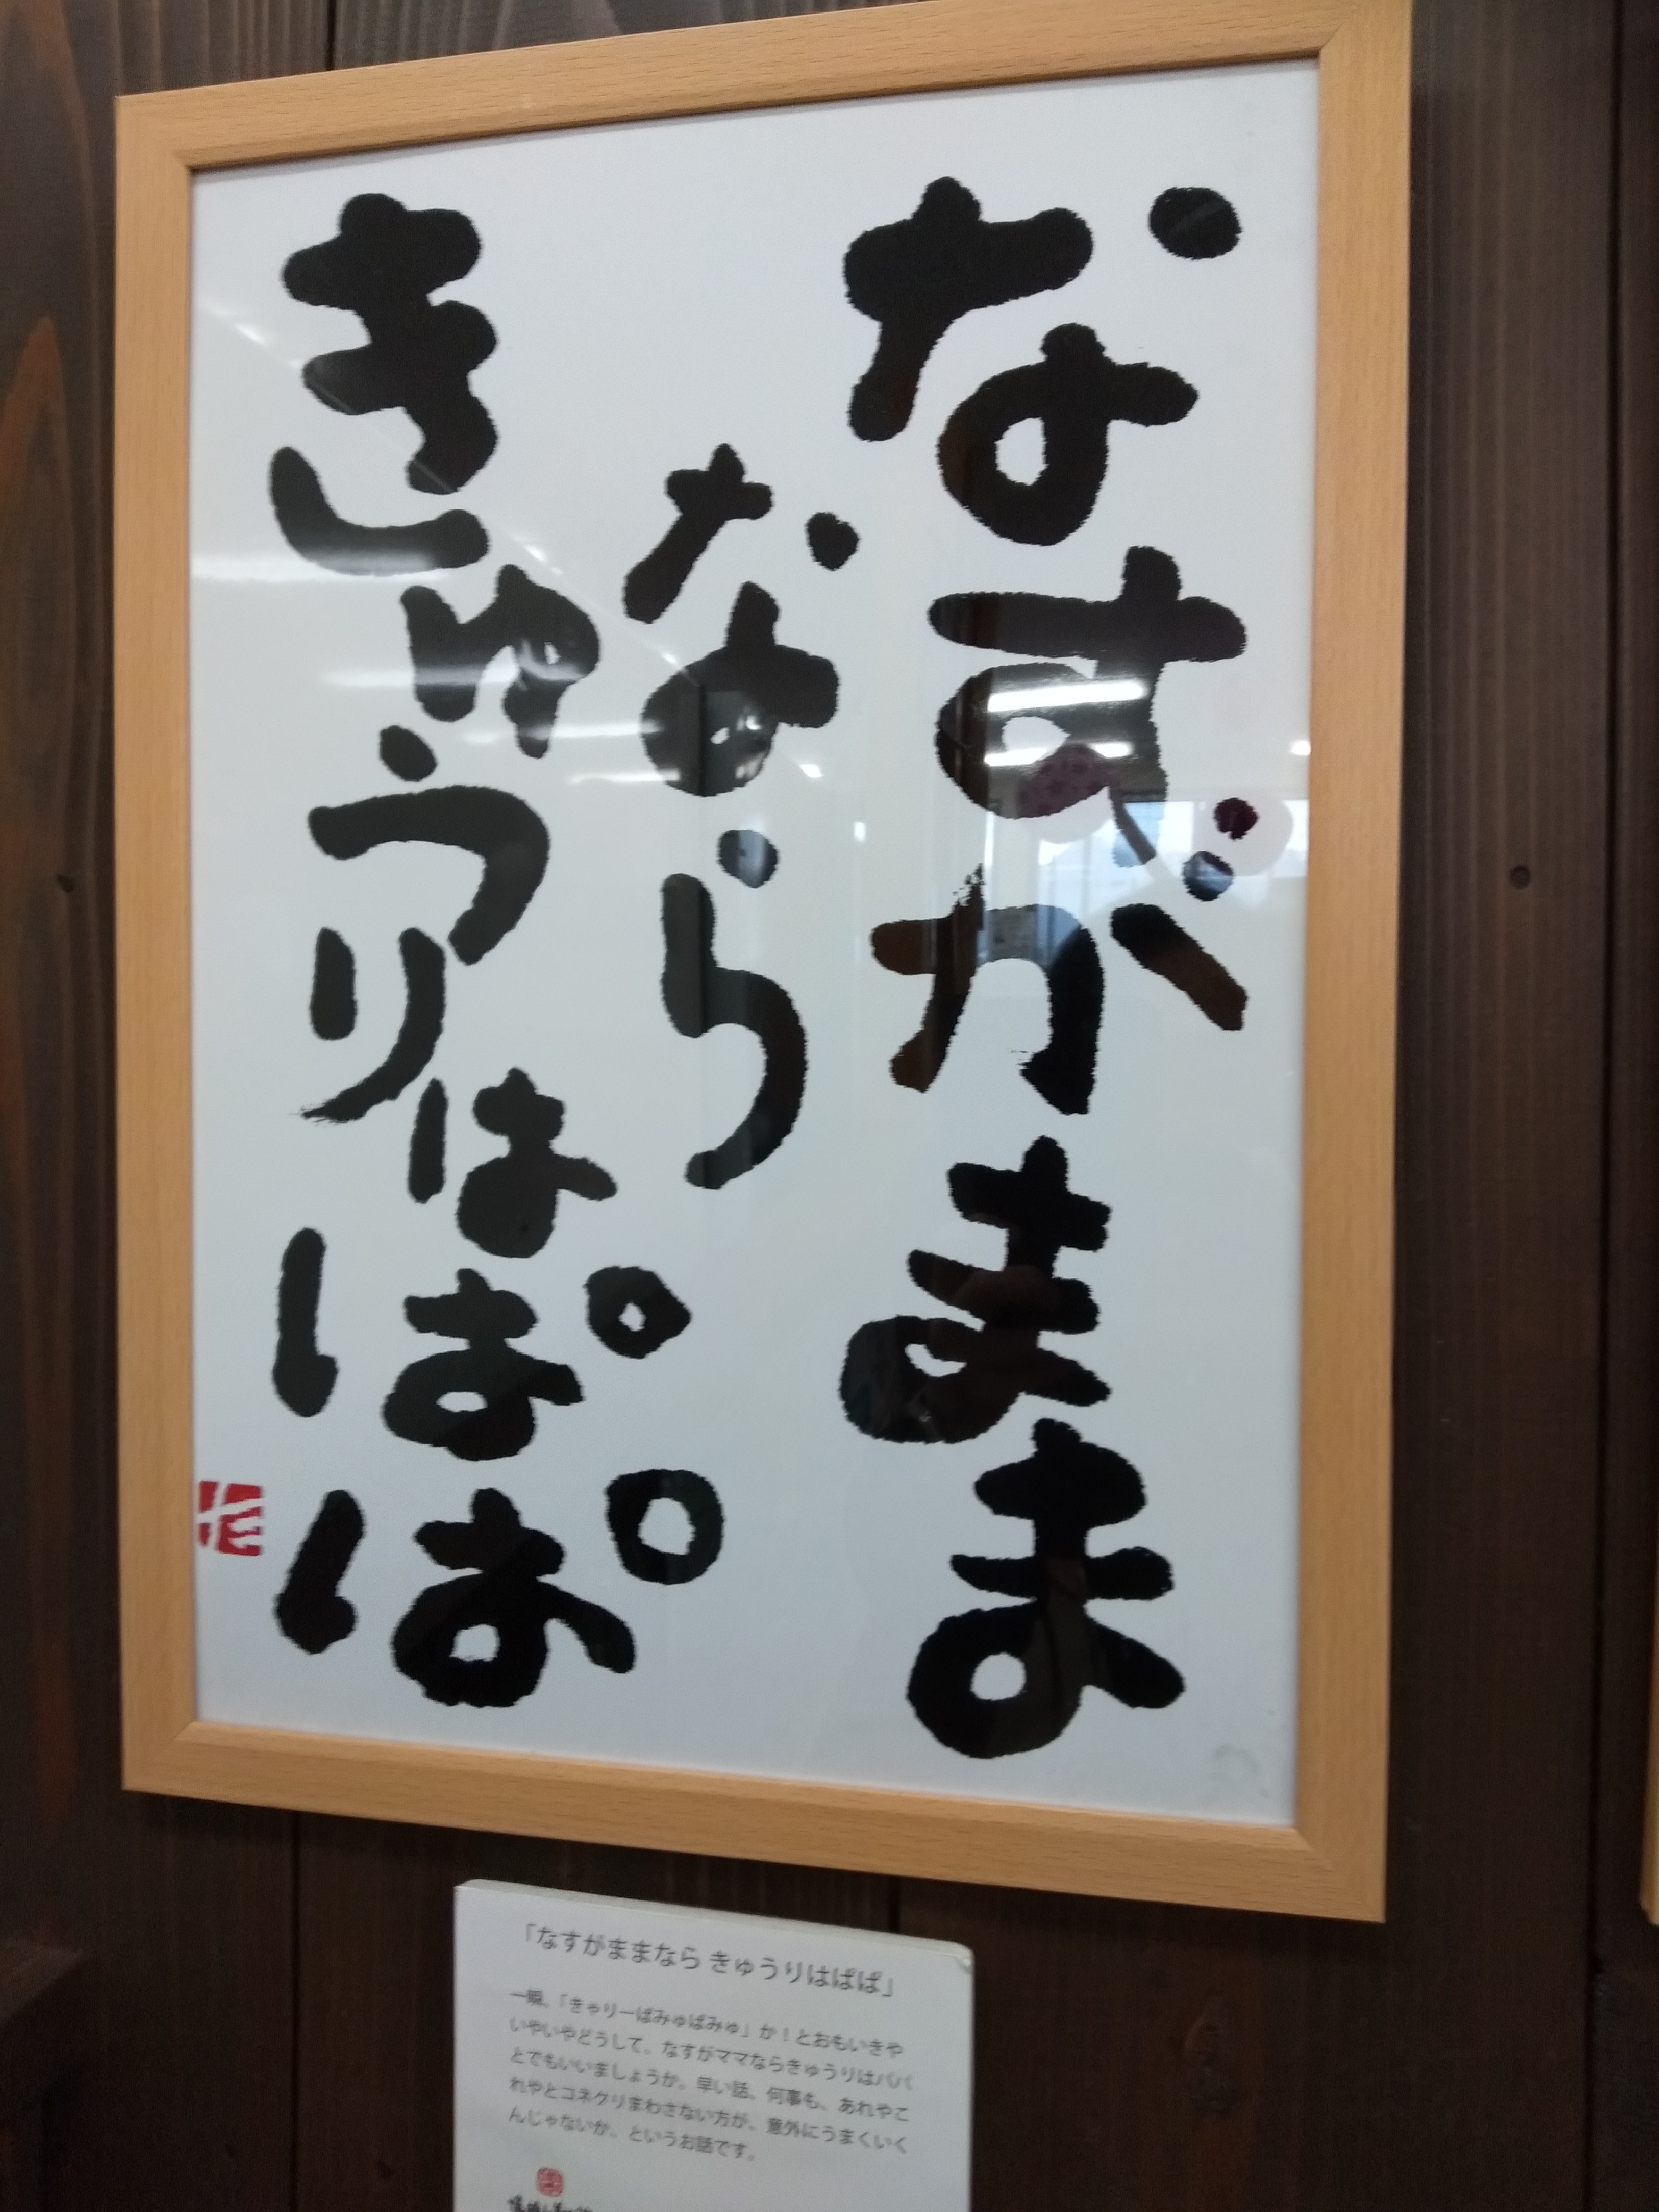 なすがまま
なら
きゅうりはぱぱ
「なすがままなら きゅうりはぱぱ」
一瞬、「きゃりーぱみゅぱみゅ」か！とおもいきや
いやいやどうして。なすがママならきゅうりはパパ
とでもいいましょうか。早い話、何事も、あれやこ
れやとコネクリまわさない方が、意外にうまくいく
んじゃないか、というお話です。